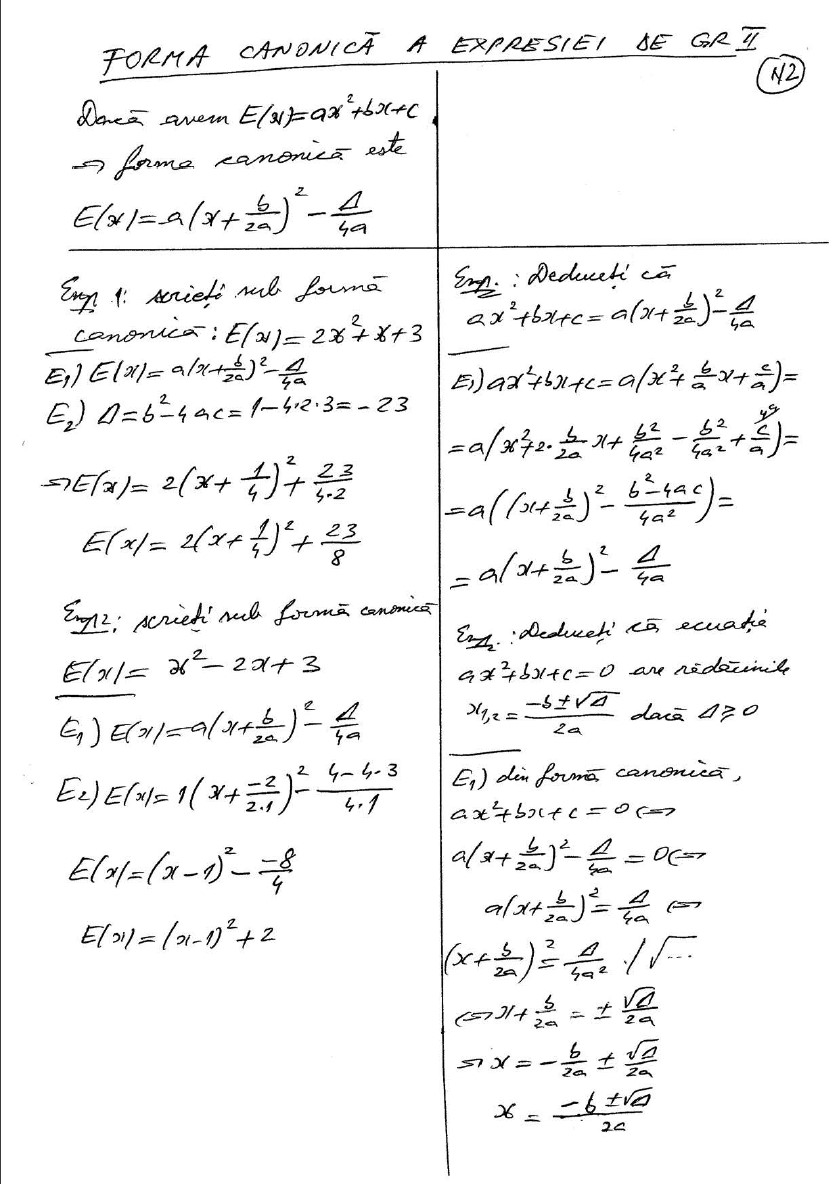 FORMA CANONICĂ A EXPRESIEI DE GR II
N2
Dacă avem E(x)=ax²+bx+c
⇒ forma canonică este
E(x)=a(x+b/2a)²-Δ/4a
Exp 1: scrieți sub formă
canonică: E(x)=2x²+x+3
E₁) E(x)=a(x+b/2a)²-Δ/4a
E₂) Δ=b²-4ac=1-4·2·3=-23
⇒E(x)=2(x+1/4)²+23/4·2
E(x)=2(x+1/4)²+23/8
Exp2: scrieți sub formă canonică
E(x)=x²-2x+3
E₁) E(x)=a(x+b/2a)²-Δ/4a
E₂) E(x)=1(x+-2/2·1)²-4-4·3/4·1
E(x)=(x-1)²--8/4
E(x)=(x-1)²+2
Exp.: Deduceți că
ax²+bx+c=a(x+b/2a)²-Δ/4a
E₁) ax²+bx+c=a(x²+b/a x+c/a)=
=a(x²+2·b/2a x+b²/4a²-b²/4a²+c/a)=
=a((x+b/2a)²-b²-4ac/4a²)=
=a(x+b/2a)²-Δ/4a
Exp.: Deduceți că ecuația
ax²+bx+c=0 are rădăcinile
x₁,₂=-b±√Δ/2a dacă Δ⩾0
E₁) din formă canonică,
ax²+bx+c=0⇔
a(x+b/2a)²-Δ/4a=0⇔
a(x+b/2a)²=Δ/4a ⇔
(x+b/2a)²=Δ/4a² ·/√...
⇔x+b/2a=±√Δ/2a
⇒x=-b/2a±√Δ/2a
x=-b±√Δ/2a